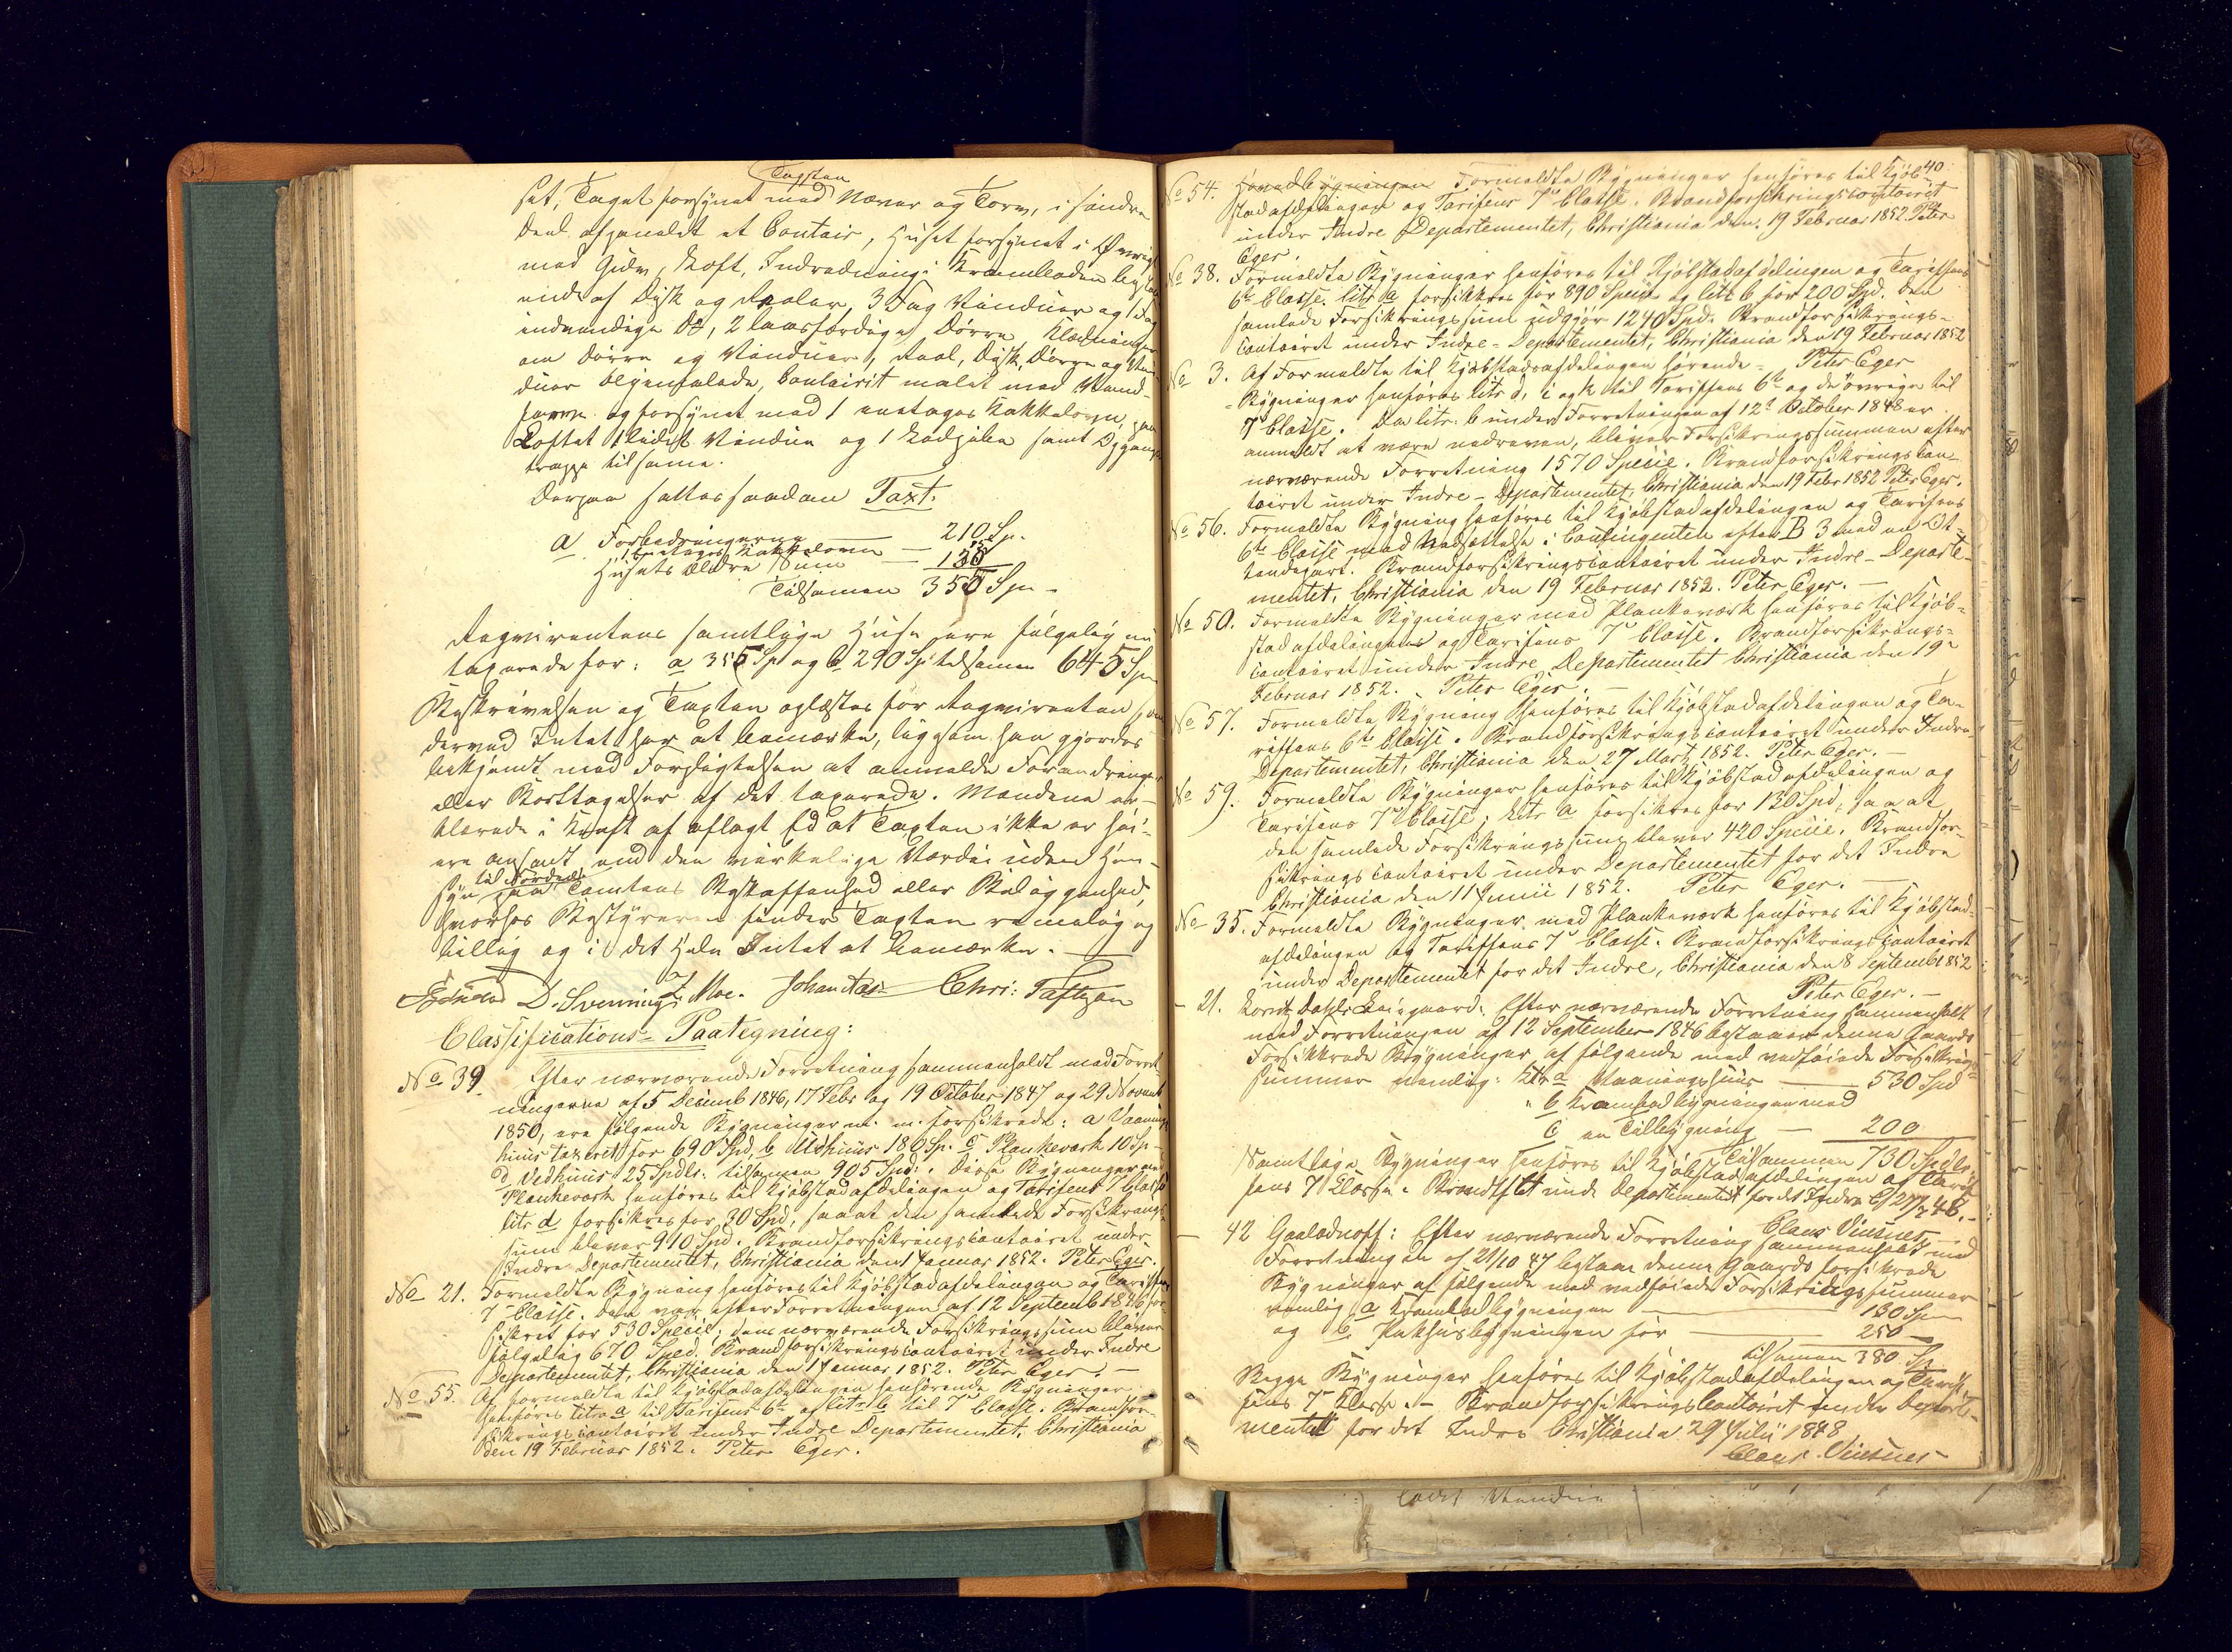 Tagsten
set, Taget forsynet med Næver og Torv, i søndre
Deel afpanelet et Contoir, Huset forsynet i Øvrigt
med Gulv, Loft, Indredning i Kramboden bestaa
ende af Disk og Reoler, 3 Fag Vinduer og 1 Fag
indvendige D:, 2 laasfærdige Dørre Klædninger
om Dørre og Vinduer, Reol, Disk, Dørre og Vin-
duer oljemalede, Contoirit malet med Vand-
farve og forsynet med 1 enetages Kakkelovn, paa
Loftet 1 lidet Vindue og 1 Lodpibe samt Opgangs
trappe til samme.
Derpaa sattes saadan Taxt.
a Forbedringerne — 210 Sp.
1 Etages Kakkelovn —
Husets Ældre Sum — 130
Tilsamen 355 Spe -
Reqvirentens samtlige Huse ere følgelig nu
taxerede for: a 355 Sp og b 290 Sp tilsamen 645 Spe
Beskrivelsen og Taxten oplæstes for Reqvirenten som
derved Intet har at bemærke, ligesom han gjordes
bekjendt med Forpligtelsen at anmelde Forandringer
eller Borttagelser af det taxerede. Mændene er-
klærede i Kraft af aflagt Ed at Taxten ikke er høi-
ere ansadt end den virkelige Værdie uden Hen-
til Værdie
syn paa Tomtens Beskaffenhed eller Beliggenhed,
hvorhos Bestyreren finder Taxten rimelig og
billig og i det Hele Intet at bemærke. —
D. Svenning J. Moe. Johan Aas Chri: Taftezon
Classifications-Paategning:
No 39. Efter nærværende Forretning sammenholdt med Forret-
ningerne af 5 Decemb 1846, 17 Febr og 19 October 1847 og 29 Novemb
1850, ere følgende Bygninger m. m. forsikrede: a Vaanings
huus taxeret for 690 Spd, b Udhuus 180 Sp. c Plankeværk 10 Sp -
d Vedhuus 25 Spdlr. tilsamen 905 Spd. Disse Bygninger med
Plankeværk henføres til Kjøbstadafdelingen og Tarifens 7 Classe
litr d forsikres for 30 Spd, saaat den samlede Forsikrings-
sum bliver 910 Spd. Brandforsikringscontoiret under
Indre Departementet, Christiania den 1 Januar 1852. Peter Eger.
No 21. Formeldte Bygning henføres til Kjøbstadafdelingen og Tariffens
7de Classe. Den var efter Forretningen af 12 Septemb 1846 for-
sikret for 530 Specie; dens nærværende Forsikringssum bliver
følgelig 670 Sped. Brandforsikringscontoiret under Indre
Departementet, Christiania den 1 Januar 1852. Peter Eger. —
No 55. Af formeldte til Kjøbstadafdelingen henhørende Bygninger
henføres litra a til Tarifens 6te og litr b til 7 Classe. Brandfor-
sikringscontoiret under Indre Departementet, Christiania
den 19 Februar 1852. Peter Eger.
40.
No 54. Hovedbygningen Formeldte Bygninger henføres til Kjøb-
stadafdelingen og Tarifens 7de Classe. Brandforsikringscontoiret
under Indre Departementet, Christiania den 19 Februar 1852 Peter
Eger.
No 38. Formeldte Bygninger henføres til Kjøbstadafdelingen og Tariffens
6te Classe. litr a forsikkres for 890 Specie og litr b for 200 Spd. Den
samlede Forsikringssum udgjør 1240 Spd. Brandforsikrings-
contoiret under Indre-Departementet, Christiania den 19 Februar 1852
Peter Eger
No 3. Af Formeldte til Kjøbstadsafdelingen hørende -
Bygninger henføres litr d, i og k til Tariffens 6te og de øvrige til
7 Classe. Da litr. b under Forretningen af 12te October 1848 er
anmeldt at være nedreven, bliver Forsikringssummen efter
nærværende Forretning 1570 Specie. Brandforsikringscon-
toiret under Indre-Departementet, Christiania den 19 Febr 1852 Peter Eger.
No 56. Formeldte Bygning henføres til Kjøbstadafdelingen og Tarifens
6te Classe med Nedsættelse i Contingenten efter B 3 med en Ot-
tendepart. Brandforsikringscontoiret under Indre-Departe-
mentet, Christiania den 19 Februar 1852. Peter Eger. —
No 50. Formeldte Bygninger med Plankeværk henføres til Kjøb-
stadafdelingen og Tarifens 7de Classe. Brandforsikrings-
contoiret under Indre Departementet Christiania den 19de
Februar 1852. Peter Eger. —
No 57. Formeldte Bygning henføres til Kjøbstadafdelingen og Ta-
riffens 6te Classe. Brandforsikringscontoiret under Indre
Departementet, Christiania den 27 Marts 1852. Peter Eger. —
No 59. Formeldte Bygninger henføres til Kjøbstadafdelingen og
Tarifens 7de Classe; litr a forsikres for 130 Spd, saaat
den samlede Forsikringssum bliver 420 Specie. Brandfor-
sikringscontoiret under Departementet for det Indre
Christiania den 11 Junii 1852. Peter Eger. —
No 35. Formeldte Bygninger med Plankeværk henføres til Kjøbstad-
afdelingen og Tariffens 7de Classe. Brandforsikringscontoiret
under Departementet for det Indre, Christiania den 8 Septemb 1852
Peter Eger. —
- 21. Lorentz Dahls Leiegaard: Efter nærværende Forretning sammenholdt
med Forretningen af 12 September 1846 bestaaer denne Gaards
Forsikkrede Bygninger af følgende med vedføiede Forsikrings-
summer nemlig: Litr a Vaaningshuus — 530 Spd
" b Krambodbygningen med
c en Tilbygning — 200
Tilsammen 730 Spdlr.
Samtlige Bygninger henføres til Kjøbstadsafdelingen og Tarif
fens 7 Classe. Brandfs Ct unde Departementet for det Indre C/ 27/7 48. —
Claus Viusnes
- 42 Gooladnoff: Efter nærværende Forretning sammenholdt med
Forretningen af 21/10 47 bestaar denne Gaards forsikrede
Bygninger af følgende med vedføiede Forsikringssummer
nemlig a Krambodbygningen — 130 Spe
og b Pakhusbygningen for — 250 —
tilsamen 380 Sp.
Begge Bygninger henføres til Kjøbstadafdelingen og Tarif-
fens 7de Classe. - Brandforsikringscontoiret under Departe-
mentet for det Indre Christiania 29 Julii 1848
Claus Viusnes